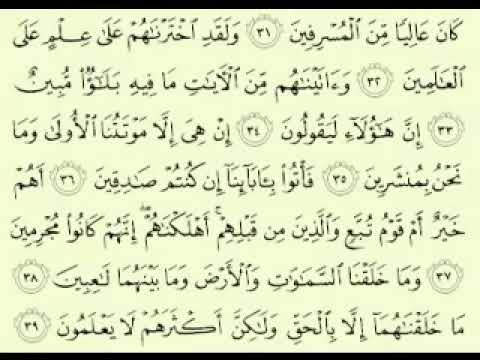 كَانَ عَالِيًا مِّنَ ٱلۡمُسۡرِفِينَ ٣١ وَلَقَدِ ٱخۡتَرۡنَٰهُمۡ عَلَىٰ عِلۡمٍ عَلَى
ٱلۡعَٰلَمِينَ ٣٢ وَءَاتَيۡنَٰهُم مِّنَ ٱلۡأٓيَٰتِ مَا فِيهِ بَلَٰٓؤٞاْ مُّبِينٌ
٣٣ إِنَّ هَٰٓؤُلَآءِ لَيَقُولُونَ ٣٤ إِنۡ هِيَ إِلَّا مَوۡتَتُنَا ٱلۡأُولَىٰ وَمَا
نَحۡنُ بِمُنشَرِينَ ٣٥ فَأۡتُواْ بِـَٔابَآئِنَآ إِن كُنتُمۡ صَٰدِقِينَ ٣٦ أَهُمۡ
خَيۡرٌ أَمۡ قَوۡمُ تُبَّعٖ وَٱلَّذِينَ مِن قَبۡلِهِمۡ أَهۡلَكۡنَٰهُمۡۖ إِنَّهُمۡ كَانُواْ مُجۡرِمِينَ
٣٧ وَمَا خَلَقۡنَا ٱلسَّمَٰوَٰتِ وَٱلۡأَرۡضَ وَمَا بَيۡنَهُمَا لَٰعِبِينَ ٣٨
مَا خَلَقۡنَٰهُمَآ إِلَّا بِٱلۡحَقِّ وَلَٰكِنَّ أَكۡثَرَهُمۡ لَا يَعۡلَمُونَ ٣٩